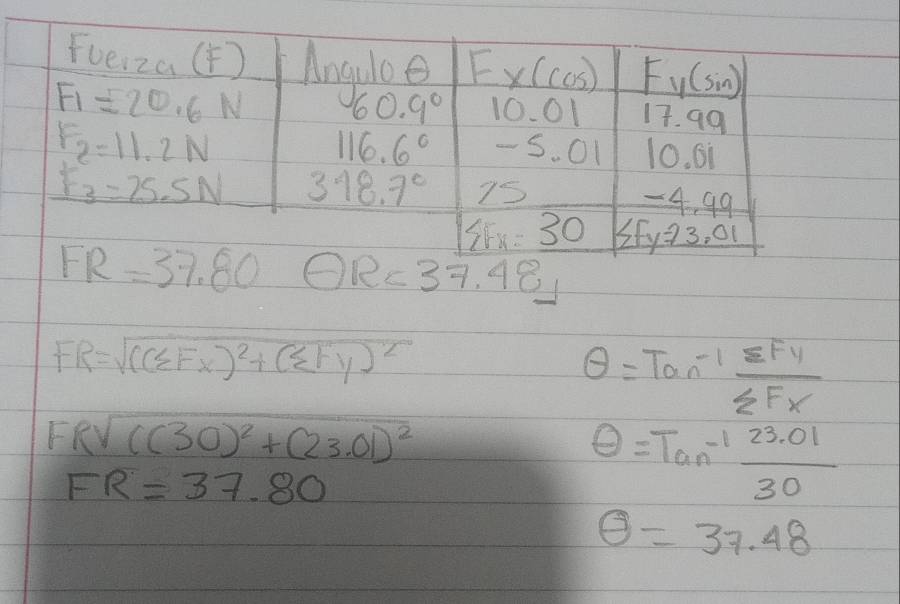 Fuerza (F) Angulo θ Fx(cos) Fy(sin)
F1=20.6 N 60.9° 10.01 17.99
F2=11.2N 116.6° -5.01 10.01
F3=25.5N 348.7° 25 -4.99
ΣFx= 30 ΣFy=23.01
FR=37.80 θR=37.48
FR=√((ΣFx)²+(ΣFy)² θ=Tan⁻¹ ΣFy/ΣFx
FR√((30)²+(23.01)² θ=Tan⁻¹ 23.01/30
FR=37.80 θ= 37.48